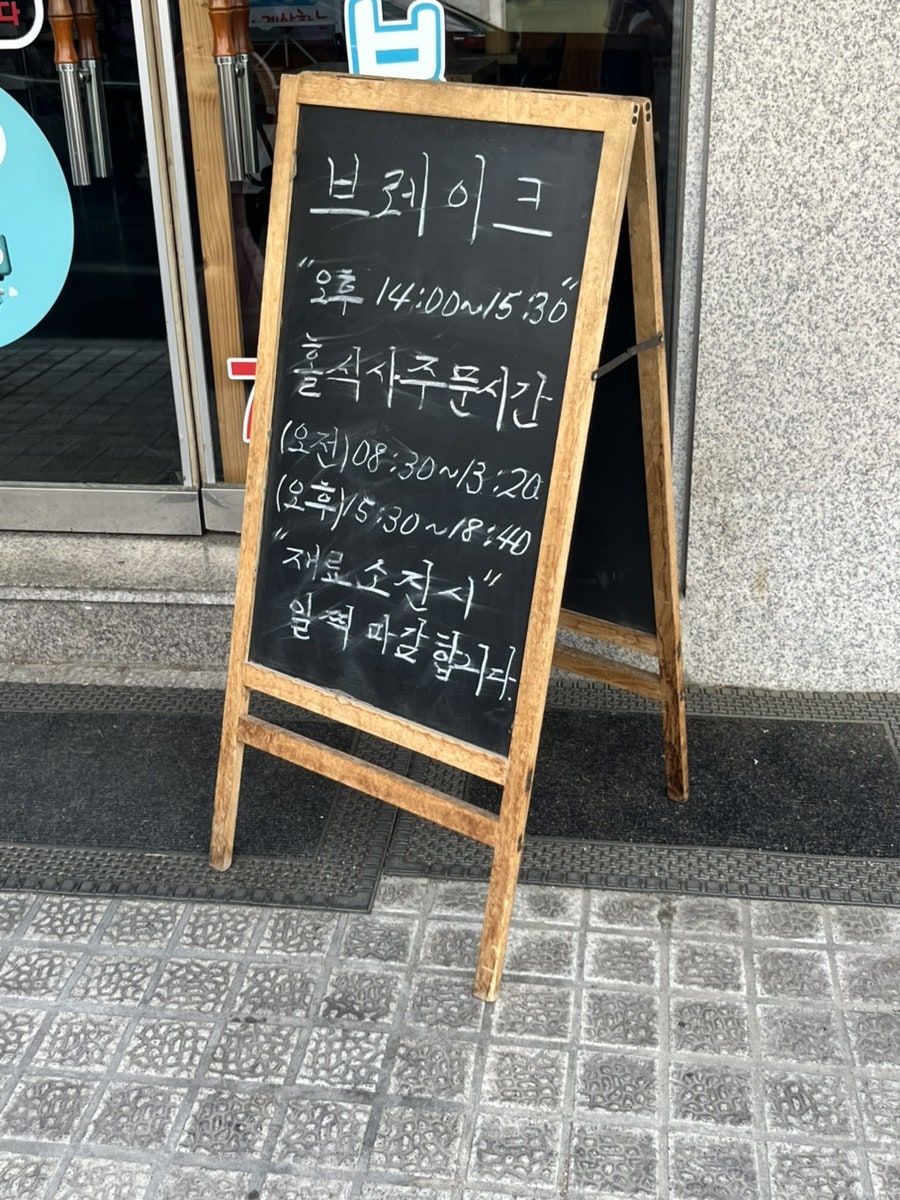 브레이크
"오후 14:00~15:30"
홀식사주문시간
(오전) 08:30~13:20
(오후) 15:30~18:40
"재료 소진시"
일찍 마감합니다.